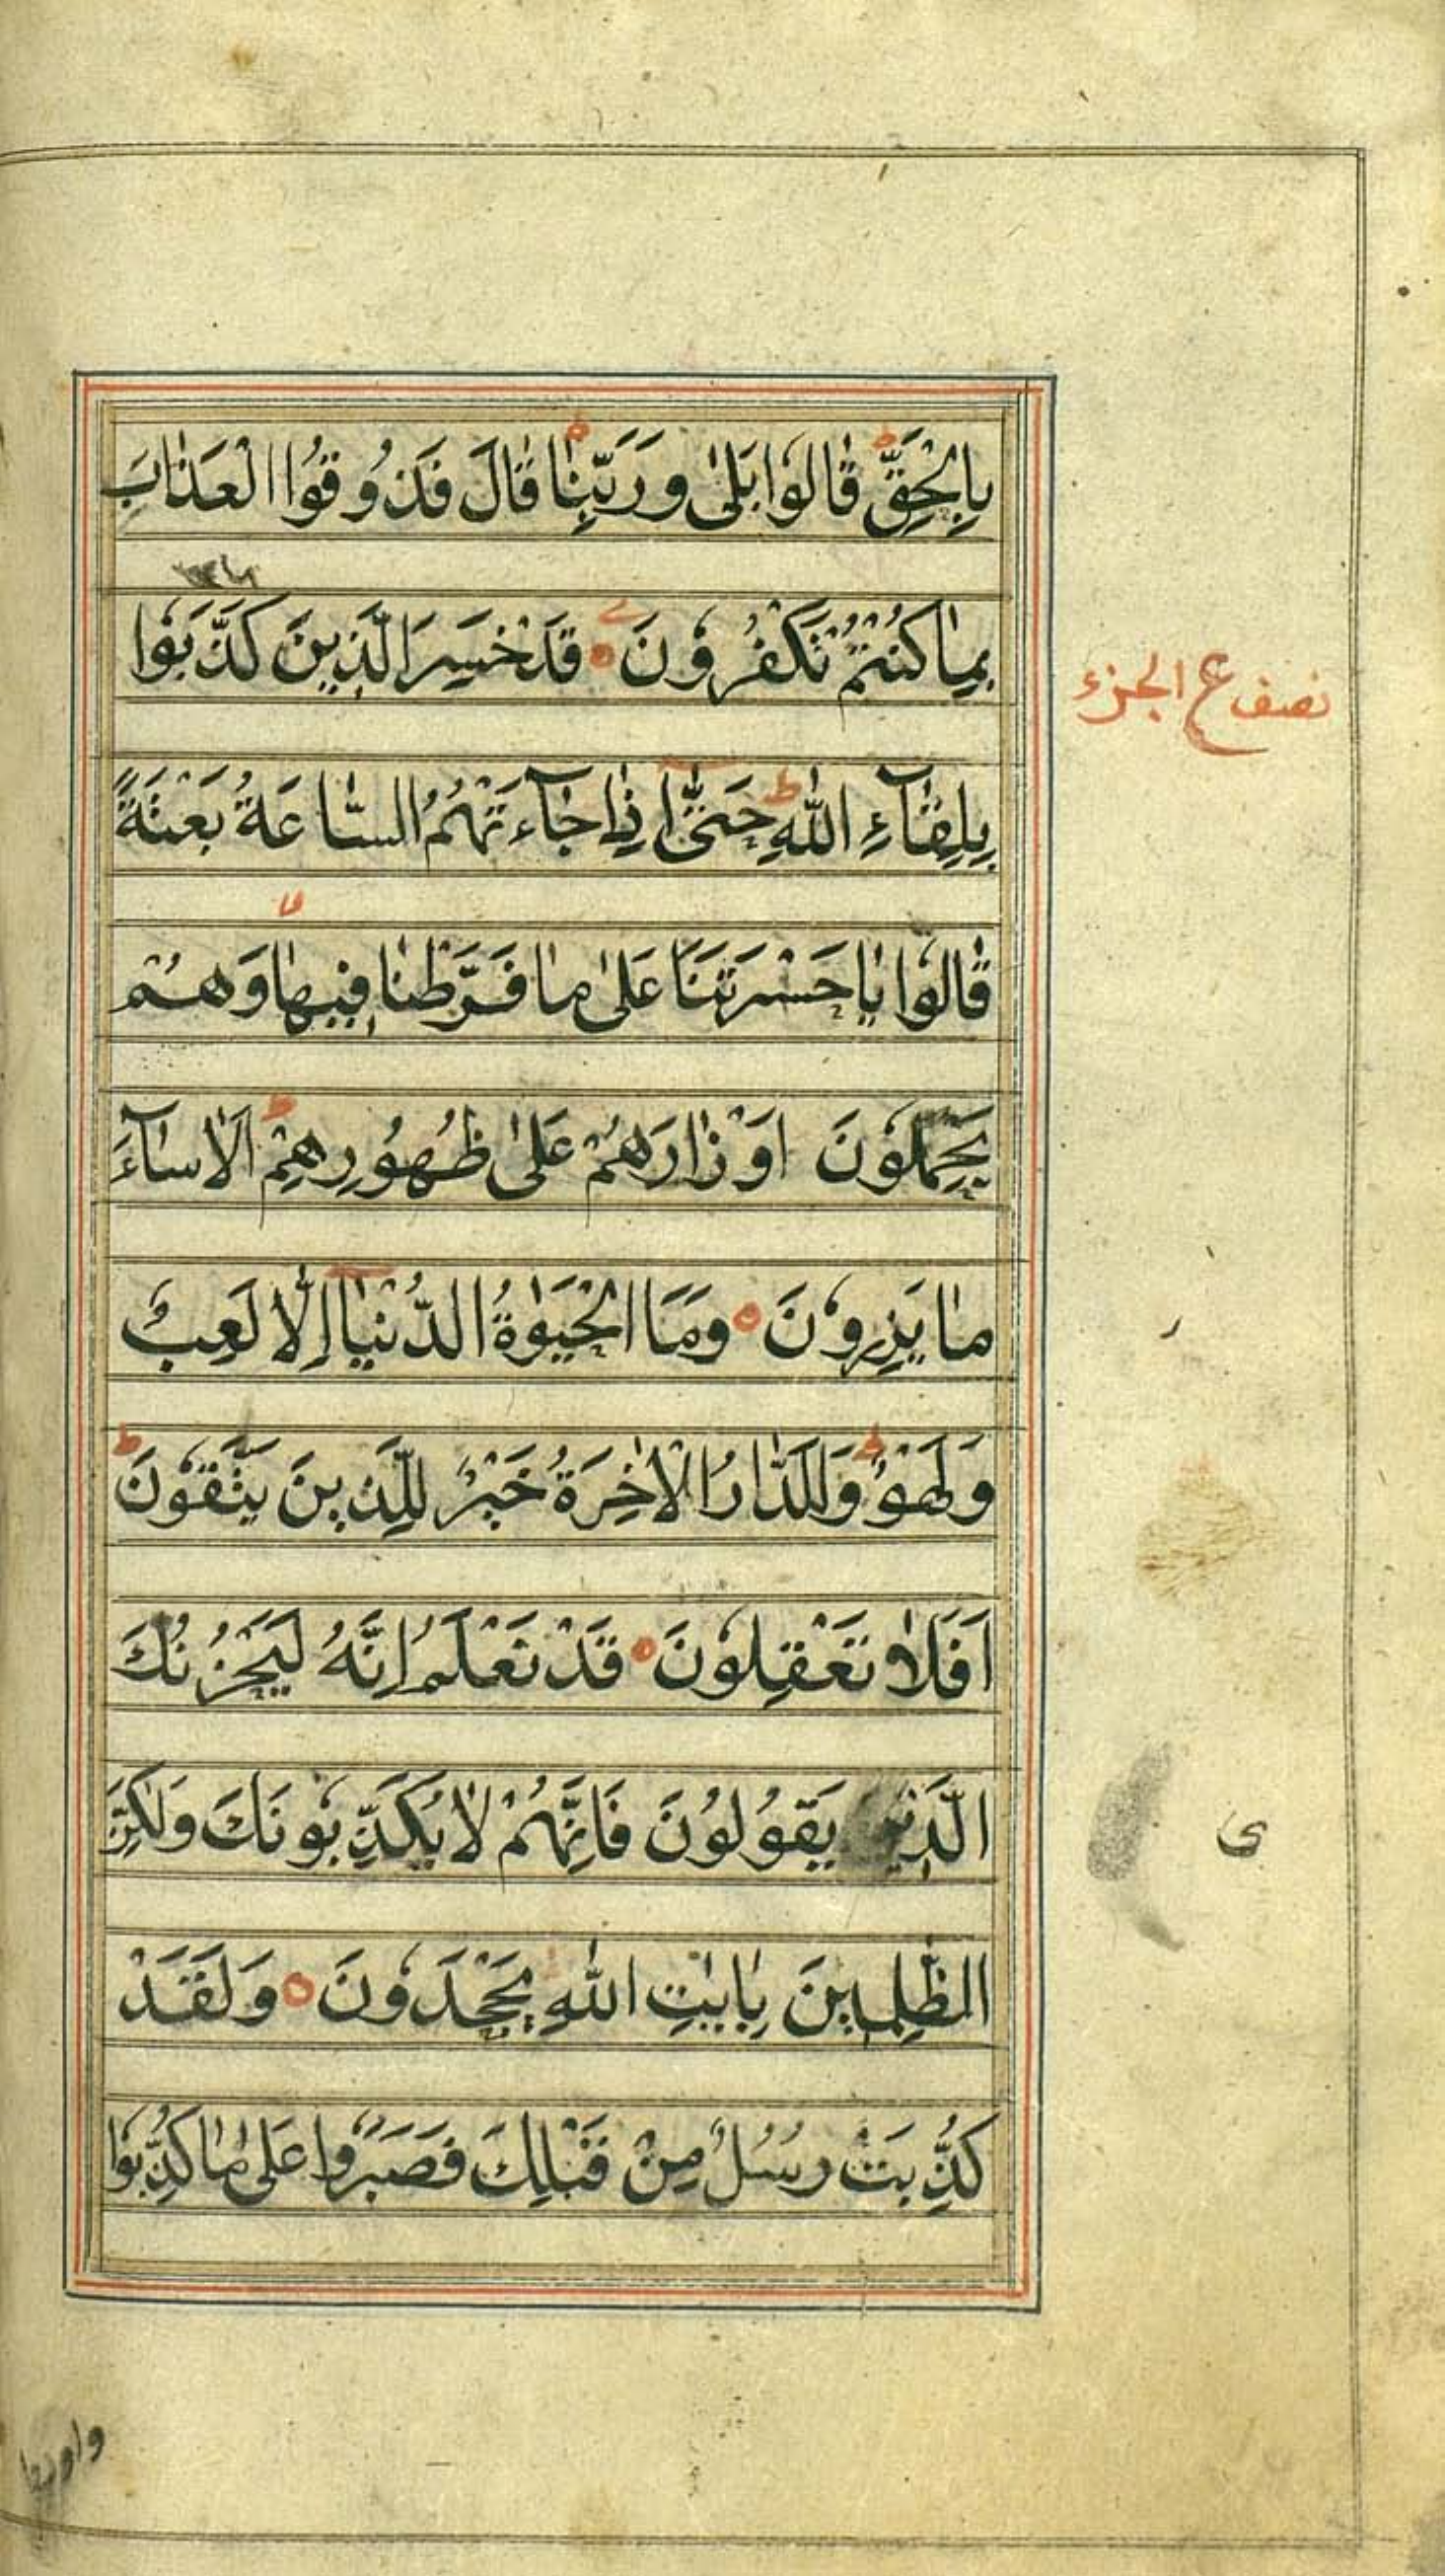 بِالْحَقِّ ط قَالُوا بَلَىٰ وَرَبِّنَا ط قَالَ فَذُوقُوا الْعَذَابَ
بِمَا كُنْتُمْ تَكْفُرُونَ ه قَدْ خَسِرَ الَّذِينَ كَذَّبُوا
نصف ع الجزء
بِلِقَآءِ اللّٰهِ ط حَتّٰىٓ اِذَا جَآءَتْهُمُ السَّاعَةُ بَغْتَةً
قَالُوا يَا حَسْرَتَنَا عَلَىٰ مَا فَرَّطْنَا فِيهَا وَهُمْ
يَحْمِلُونَ اَوْزَارَهُمْ عَلَىٰ ظُهُورِهِمْ ط اَلَا سَآءَ
مَا يَزِرُونَ ه وَمَا الْحَيٰوةُ الدُّنْيَآ اِلَّا لَعِبٌ
وَلَهْوٌ ط وَلَلدَّارُ الْاٰخِرَةُ خَيْرٌ لِلَّذِينَ يَتَّقُونَ ط
اَفَلَا تَعْقِلُونَ ه قَدْ نَعْلَمُ اِنَّهُ لَيَحْزُنُكَ
الَّذِي يَقُولُونَ فَاِنَّهُمْ لَا يُكَذِّبُونَكَ وَلٰكِنَّ
ى
الظّٰلِمِينَ بِاٰيٰتِ اللّٰهِ يَجْحَدُونَ ه وَلَقَدْ
كُذِّبَتْ رُسُلٌ مِنْ قَبْلِكَ فَصَبَرُوا عَلَىٰ مَا كُذِّبُوا